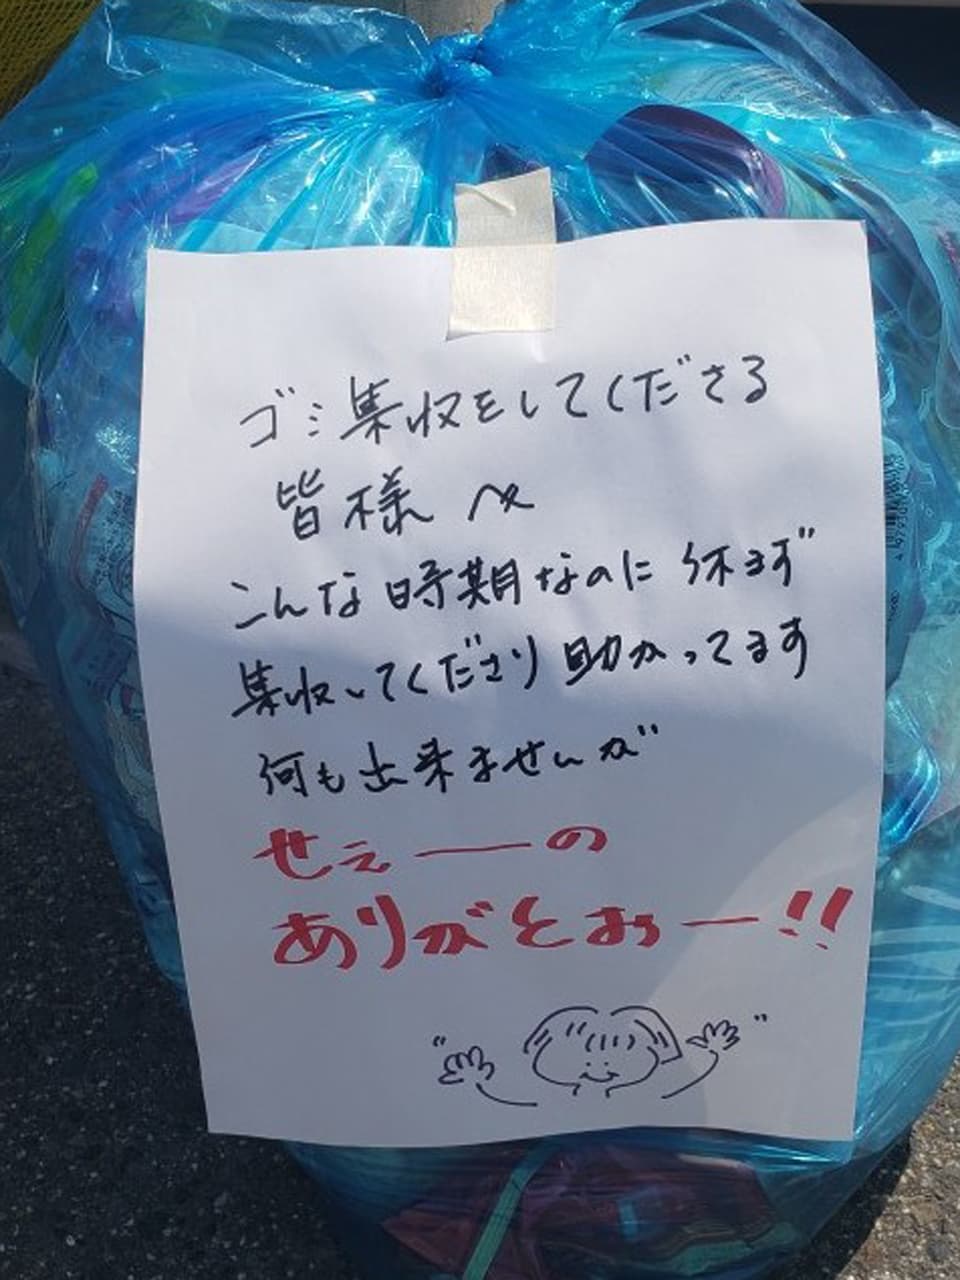 ゴミ集収をしてくださる
皆様へ
こんな時期なのに休まず
集収してくださり助かってます
何も出来ませんが
せぇーの
ありがとおー!!